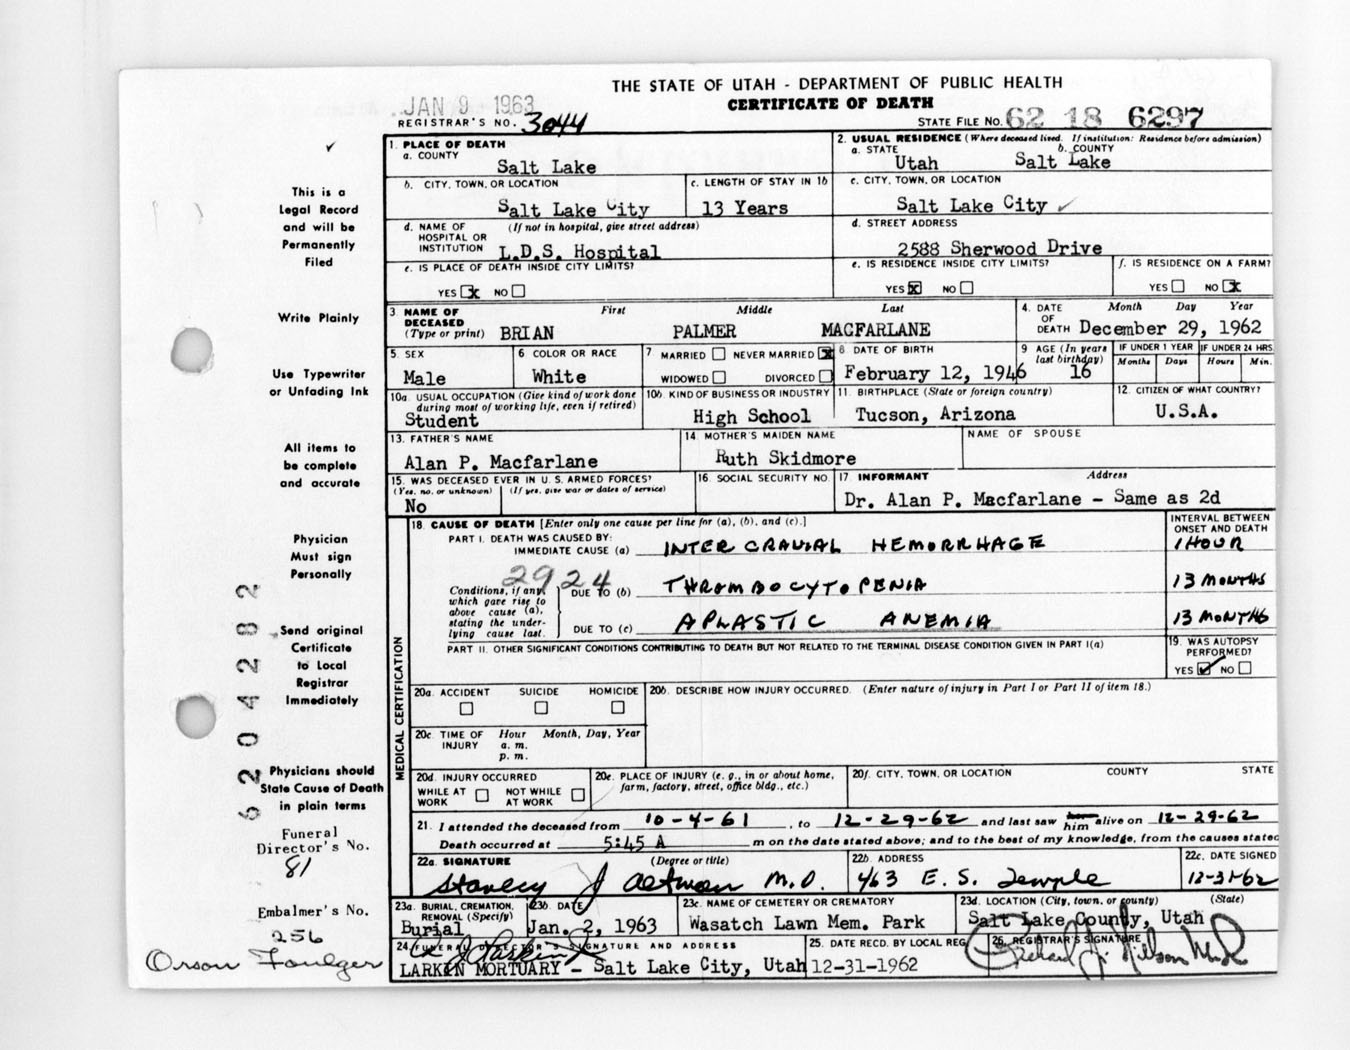 THE STATE OF UTAH - DEPARTMENT OF PUBLIC HEALTH
CERTIFICATE OF DEATH
JAN 9 1963
REGISTRAR'S NO. 3044
STATE FILE NO. 62 18 6297
This is a
Legal Record
and will be
Permanently
Filed
Write Plainly
Use Typewriter
or Unfading Ink
All items to
be complete
and accurate
Physician
Must sign
Personally
Send original
Certificate
to Local
Registrar
Immediately
Physicians should
State Cause of Death
in plain terms
Funeral
Director's No.
81
Embalmer's No.
256
Orson Foulger
6204282
1. PLACE OF DEATH
a. COUNTY
Salt Lake
2. USUAL RESIDENCE (Where deceased lived. If institution: Residence before admission)
a. STATE b. COUNTY
Utah Salt Lake
b. CITY, TOWN, OR LOCATION
Salt Lake City
c. LENGTH OF STAY IN 1b
13 Years
c. CITY, TOWN, OR LOCATION
Salt Lake City
d. NAME OF (If not in hospital, give street address)
HOSPITAL OR
INSTITUTION L.D.S. Hospital
d. STREET ADDRESS
2588 Sherwood Drive
e. IS PLACE OF DEATH INSIDE CITY LIMITS?
YES x NO
e. IS RESIDENCE INSIDE CITY LIMITS?
YES x NO
f. IS RESIDENCE ON A FARM?
YES NO x
3 NAME OF First Middle Last
DECEASED
(Type or print) BRIAN PALMER MACFARLANE
4. DATE Month Day Year
OF
DEATH December 29, 1962
5. SEX
Male
6 COLOR OR RACE
White
7 MARRIED NEVER MARRIED x
WIDOWED DIVORCED
8 DATE OF BIRTH
February 12, 1946
9 AGE (In years
last birthday)
16
IF UNDER 1 YEAR
Months Days
IF UNDER 24 HRS.
Hours Min.
10a. USUAL OCCUPATION (Give kind of work done
during most of working life, even if retired)
Student
10b. KIND OF BUSINESS OR INDUSTRY
High School
11. BIRTHPLACE (State or foreign country)
Tucson, Arizona
12. CITIZEN OF WHAT COUNTRY?
U.S.A.
13. FATHER'S NAME
Alan P. Macfarlane
14. MOTHER'S MAIDEN NAME
Ruth Skidmore
NAME OF SPOUSE
15. WAS DECEASED EVER IN U. S. ARMED FORCES?
(Yes, no, or unknown) (If yes, give war or dates of service)
No
16. SOCIAL SECURITY NO.
17 INFORMANT Address
Dr. Alan P. Macfarlane - Same as 2d
MEDICAL CERTIFICATION
18. CAUSE OF DEATH [Enter only one cause per line for (a), (b), and (c).]
INTERVAL BETWEEN
ONSET AND DEATH
PART I. DEATH WAS CAUSED BY:
IMMEDIATE CAUSE (a) INTER CRANIAL HEMORRHAGE 1 HOUR
2924
Conditions, if any,
which gave rise to
above cause (a),
stating the under-
lying cause last.
DUE TO (b) THROMBOCYTOPENIA 13 MONTHS
DUE TO (c) APLASTIC ANEMIA 13 MONTHS
PART II. OTHER SIGNIFICANT CONDITIONS CONTRIBUTING TO DEATH BUT NOT RELATED TO THE TERMINAL DISEASE CONDITION GIVEN IN PART I(a)
19. WAS AUTOPSY
PERFORMED?
YES ✓ NO
20a. ACCIDENT SUICIDE HOMICIDE
20b. DESCRIBE HOW INJURY OCCURRED. (Enter nature of injury in Part I or Part II of item 18.)
20c. TIME OF Hour Month, Day, Year
INJURY a. m.
p. m.
20d. INJURY OCCURRED
WHILE AT NOT WHILE
WORK AT WORK
20e. PLACE OF INJURY (e. g., in or about home,
farm, factory, street, office bldg., etc.)
20f. CITY, TOWN, OR LOCATION COUNTY STATE
21. I attended the deceased from 10-4-61, to 12-29-62 and last saw her him alive on 12-29-62
Death occurred at 5:45 A m on the date stated above; and to the best of my knowledge, from the causes stated
22a. SIGNATURE (Degree or title)
Stanley J Altman M.D.
22b. ADDRESS
463 E. S. Temple
22c. DATE SIGNED
12-31-62
23a. BURIAL, CREMATION,
REMOVAL (Specify)
Burial
23b. DATE
Jan. 2, 1963
23c. NAME OF CEMETERY OR CREMATORY
Wasatch Lawn Mem. Park
23d. LOCATION (City, town, or county) (State)
Salt Lake County, Utah
24. FUNERAL DIRECTOR'S SIGNATURE AND ADDRESS
LARKIN MORTUARY - Salt Lake City, Utah
25. DATE RECD. BY LOCAL REG.
12-31-1962
26. REGISTRAR'S SIGNATURE